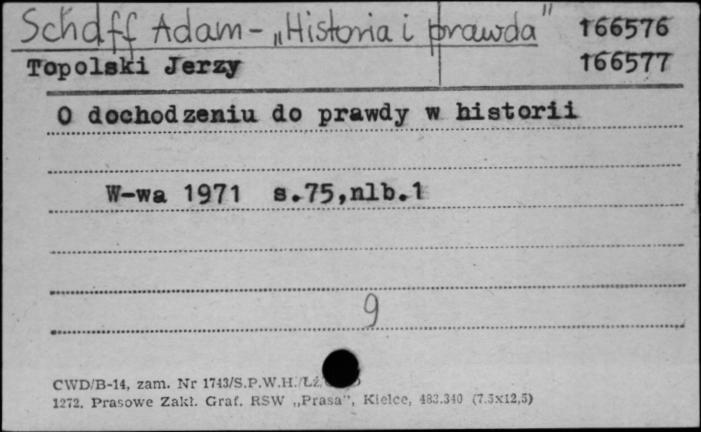 Schaff Adam - „Historia i prawda” 166576
Topolski Jerzy 166577
O dochodzeniu do prawdy w historii
W-wa 1971 s.75,nlb.1
9
CWD/B-14, zam. Nr 1743/S.P.W.H./Łź
1272. Prasowe Zakł. Graf. RSW „Prasa”, Kielce, 483.340 (7.5x12,5)